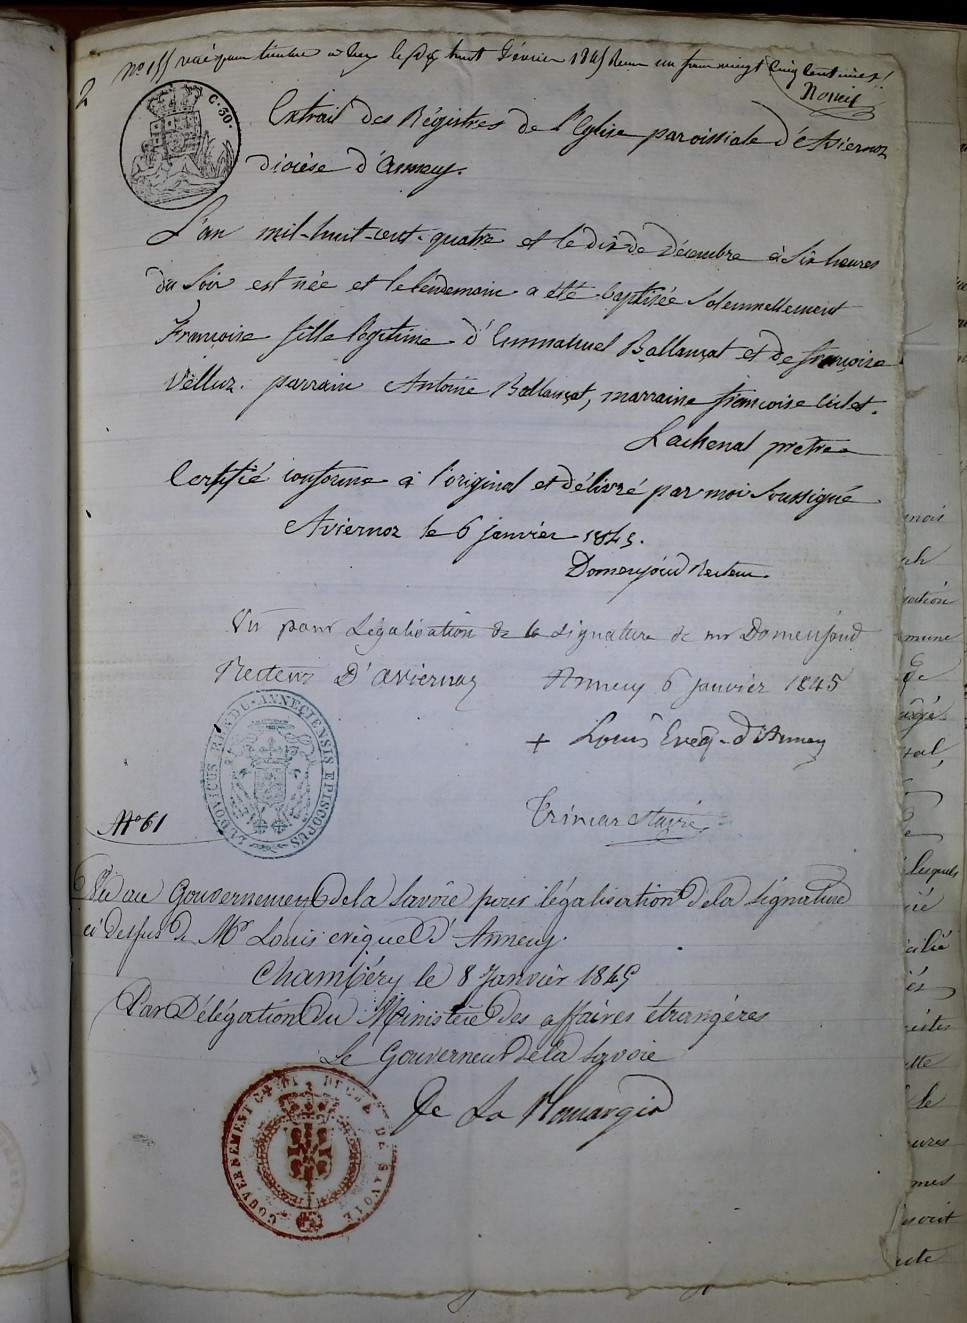 2
C. 30.
Nº 155 visé pour timbre à Gex le dix huit février 1845 Reçu un franc vingt cinq centimes.
Extrait des Régistres de l'Eglise paroissiale d'Aviernoz
diocèse d'Annecy.
L'an mil-huit-cent-quatre et le dix de Décembre à six heures
du soir est née et le lendemain a été baptisée solemnellement
Françoise fille légitime d'Emmanuel Ballançat et de françoise
Velluz. parrain Antoine Ballançat, marraine françoise
Lachenal prêtre
Certifié conforme à l'original et délivré par moi soussigné
Aviernoz le 6 janvier 1845.
Domenjoud Recteur
Vu pour Légalisation de la signature de mr Domenjoud
Recteur D'aviernoz Annecy 6 janvier 1845
+ Louis Eveq. d'Annecy
LUDOVICUS RENDU ANNECIENSIS EPISCOPUS
Nº 61
Vu au Gouvernement de la Savoie pour légalisation de la signature
ci dessus de Mr Louis evêque d'Annecy.
Chambéry le 8 Janvier 1845
Par Délégation du Ministère des affaires étrangères
Le Gouverneur de la Savoie
GOUVERNEMENT DU DUCHÉ DE SAVOIE